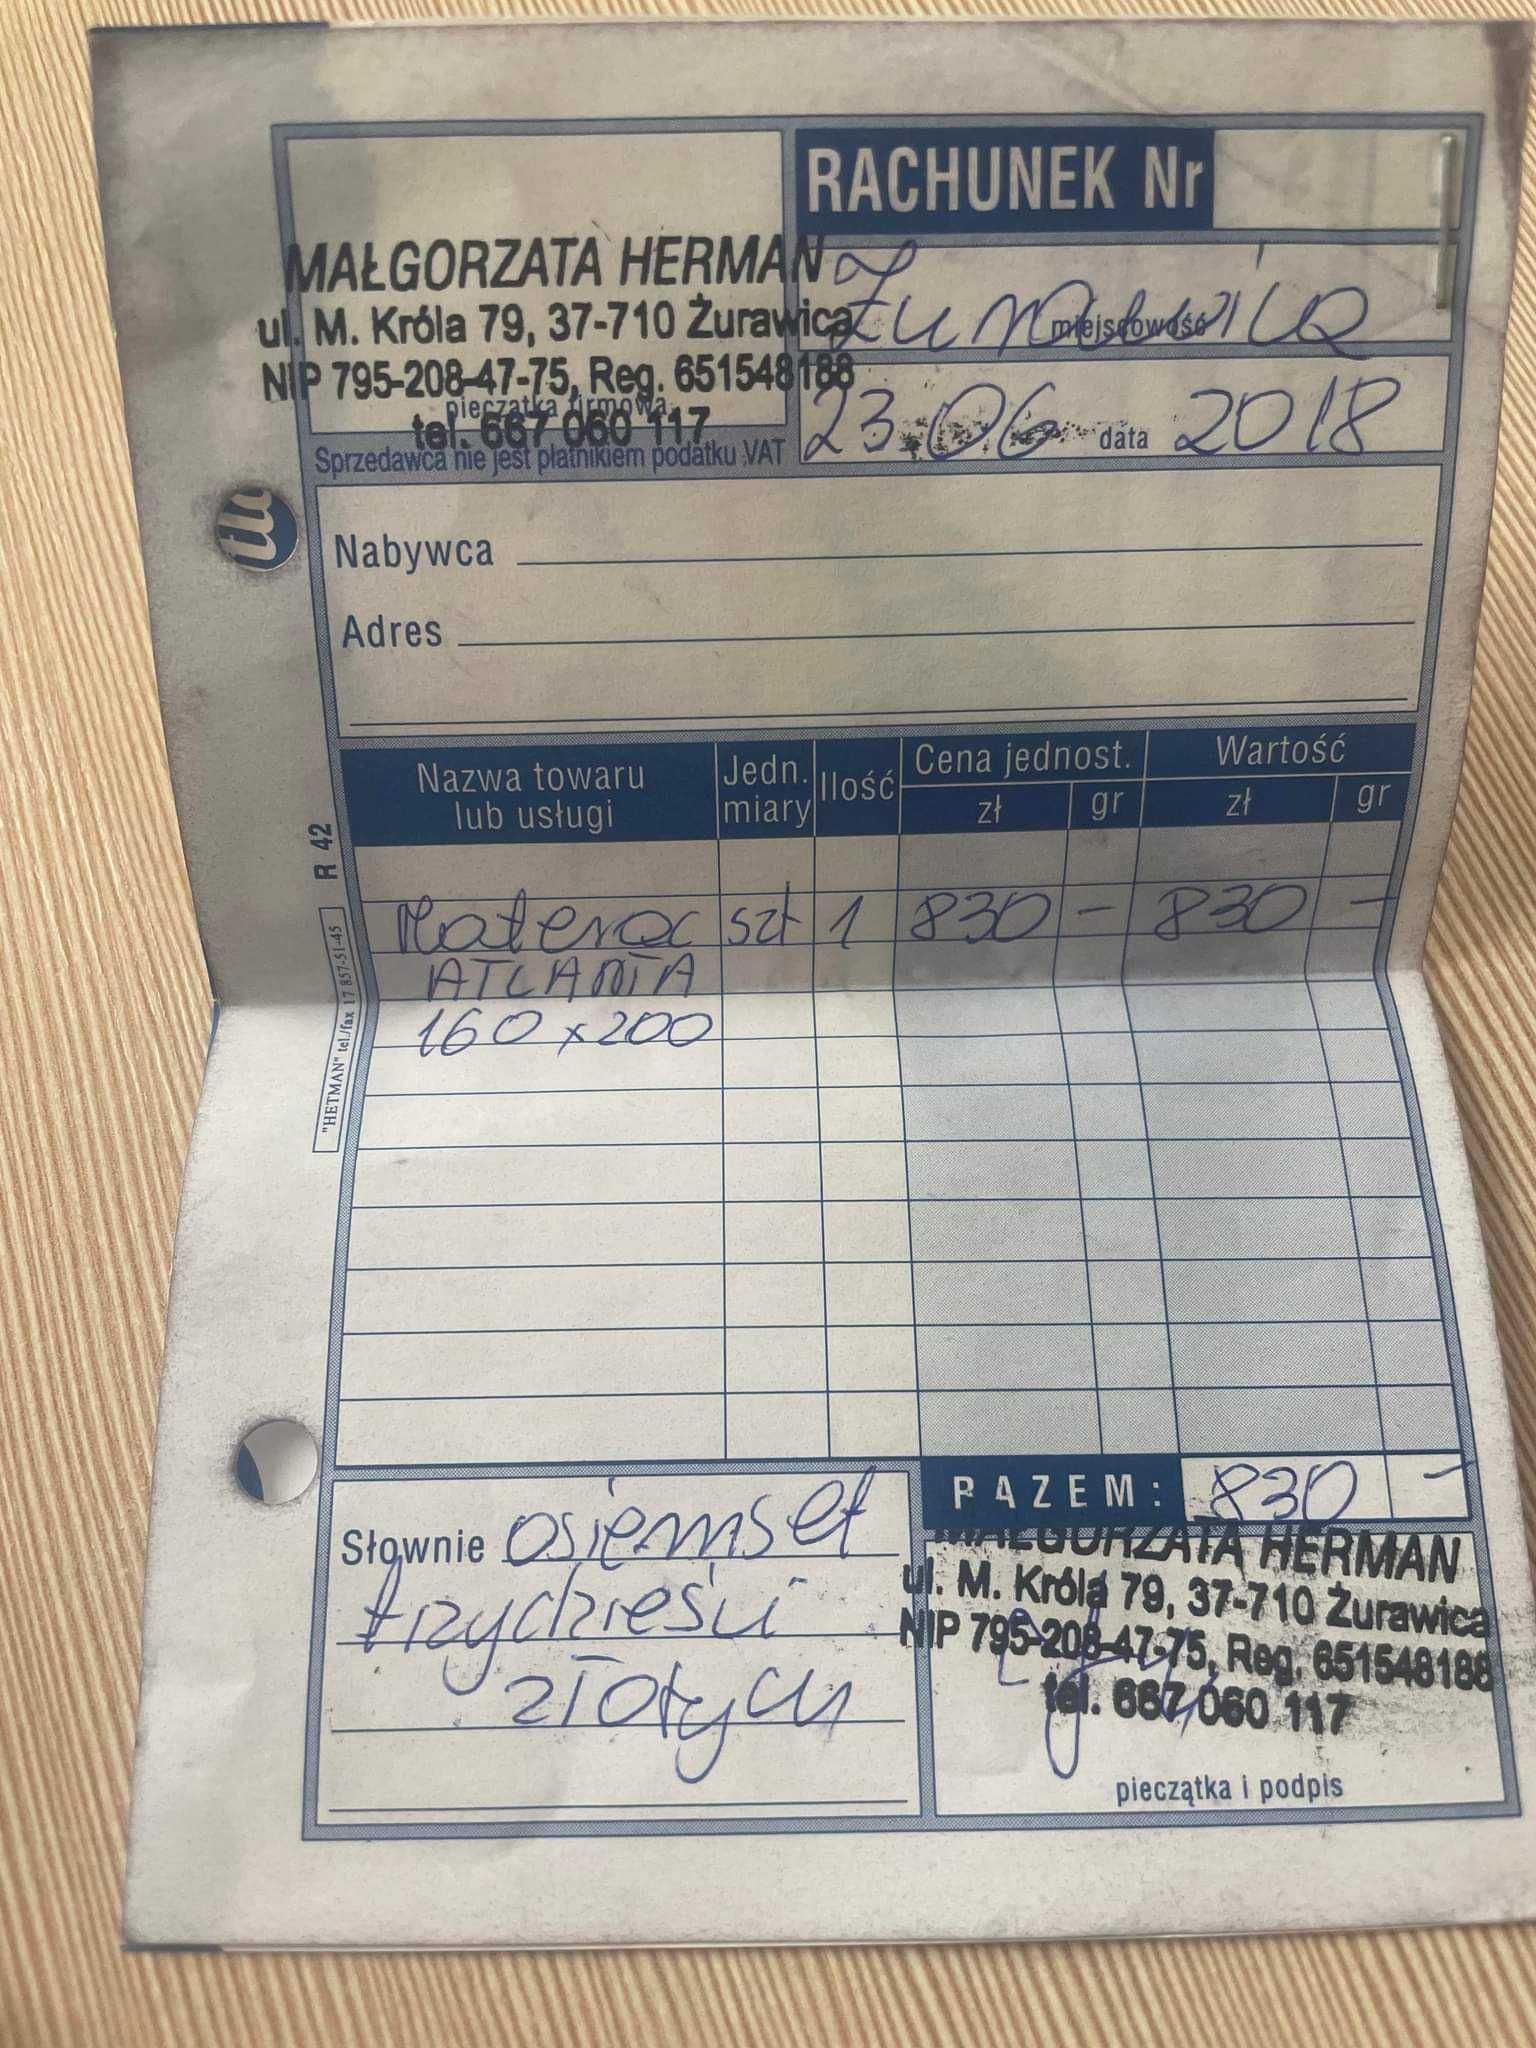 RACHUNEK Nr
MAŁGORZATA HERMAN
ul. M. Króla 79, 37-710 Żurawica
NIP 795-208-47-75, Reg. 651548188
pieczątka firmowa
tel. 667 060 117
Sprzedawca nie jest płatnikiem podatku VAT
Żurawica
miejscowość
23.06 data 2018
Nabywca
Adres
Nazwa towaru lub usługi Jedn. miary Ilość Cena jednost. zł gr Wartość zł gr
Materac szt 1 830 - 830 -
ATLANTA
160 x 200
R 42
"HETMAN" tel./fax 17 857-51-45
RAZEM: 830 -
Słownie osiemset
trzydzieści
złotych
MAŁGORZATA HERMAN
ul. M. Króla 79, 37-710 Żurawica
NIP 795-208-47-75, Reg. 651548188
tel. 667 060 117
pieczątka i podpis